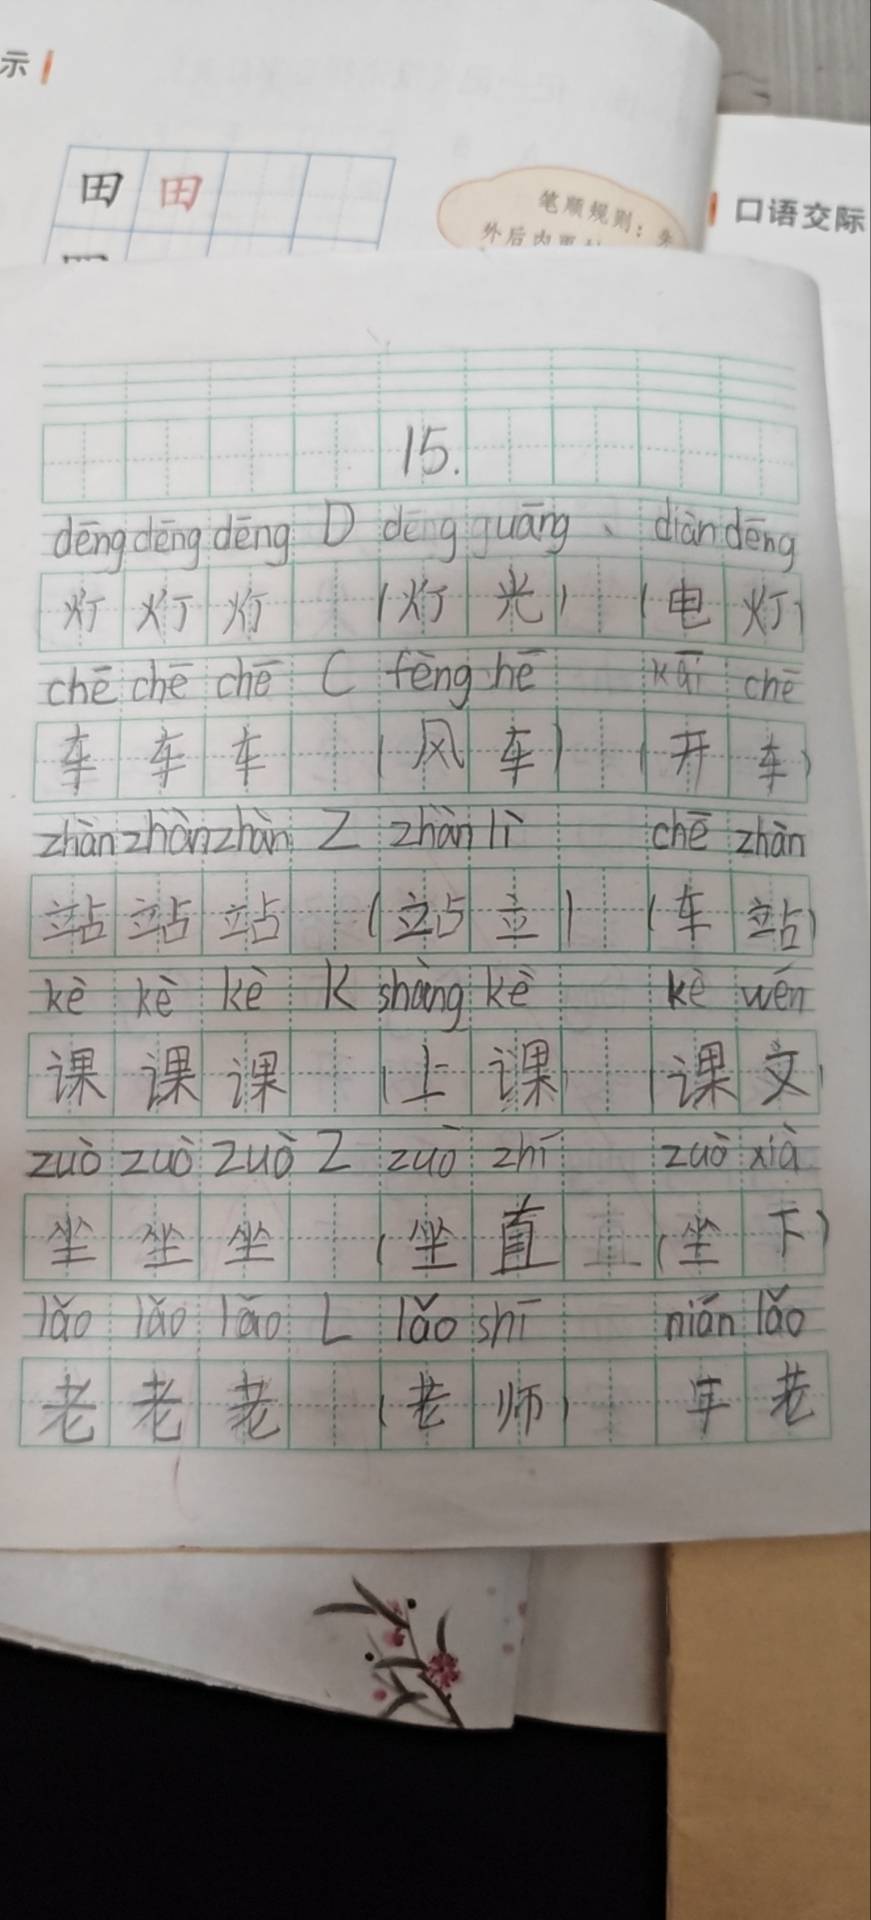 示
田 田
笔顺规则：
外后内
口语交际
15.
dēng dēng dēng D dēng guāng、 diàn dēng
灯 灯 灯 (灯 光) (电 灯)
chē chē chē C fēng hē kāi chē
车 车 车 (风 车) (开 车)
zhàn zhàn zhàn Z zhàn lì chē zhàn
站 站 站 (站 立) (车 站)
kè kè kè K shàng kè kè wén
课 课 课 (上 课) (课 文)
zuò zuò zuò Z zuò zhí zuò xià
坐 坐 坐 (坐 直 (坐 下)
lǎo lǎo lǎo L lǎo shī nián lǎo
老 老 老 (老 师) 年 老